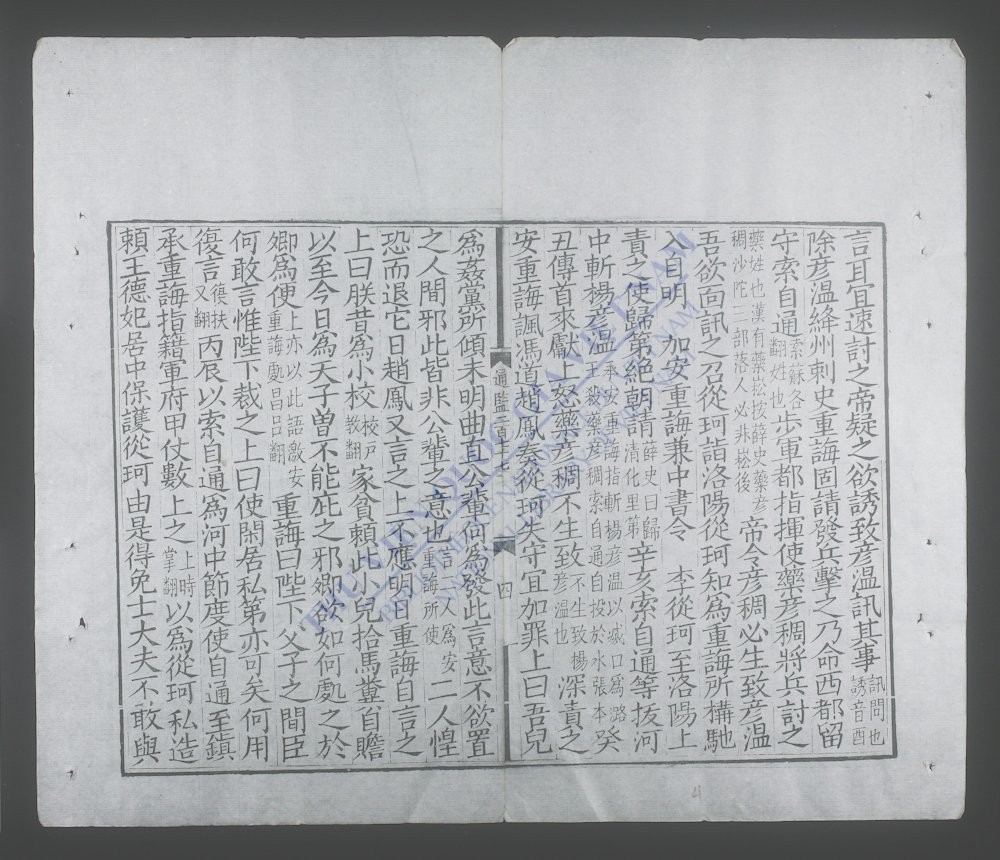 言且宜速討之帝疑之欲誘致彥溫訊其事訊問也誘音酉
除彥溫絳州刺史重誨固請發兵擊之乃命西都留
守索自通索蘇各翻姓也步軍都指揮使藥彥稠將兵討之
藥姓也漢有藥崧按薛史藥彥稠沙陀三部落人必非崧後帝令彥稠必生致彥溫
吾欲面訊之召從珂詣洛陽從珂知為重誨所構馳
入自明 加安重誨兼中書令 李從珂至洛陽上
責之使歸第絕朝請薛史曰歸清化里第辛亥索自通等拔河
中斬楊彥溫承安重誨指斬楊彥溫以滅口為潞王殺藥彥稠索自通自投於水張本癸
丑傳首來獻上怒藥彥稠不生致不生致楊彥溫也深責之
安重誨諷馮道趙鳳奏從珂失守宜加罪上曰吾兒
通監二百七十七
四
為姦黨所傾未明曲直公輩何為發此言意不欲置
之人間邪此皆非公輩之意也言又為安重誨所使二人惶
恐而退它日趙鳳又言之上不應明日重誨自言之
上曰朕昔為小校校戶教翻家貧賴此小兒拾馬糞自贍
以至今日為天子曾不能庇之邪卿欲如何處之於
卿為便上亦以此語激安重誨處昌呂翻重誨曰陛下父子之間臣
何敢言惟陛下裁之上曰使閑居私第亦可矣何用
復言復扶又翻丙辰以索自通為河中節度使自通至鎮
承重誨指籍軍府甲仗數上之上時掌翻以為從珂私造
賴王德妃居中保護從珂由是得免士大夫不敢與
PHU VIEN QUOC GIA VIET NAM
4